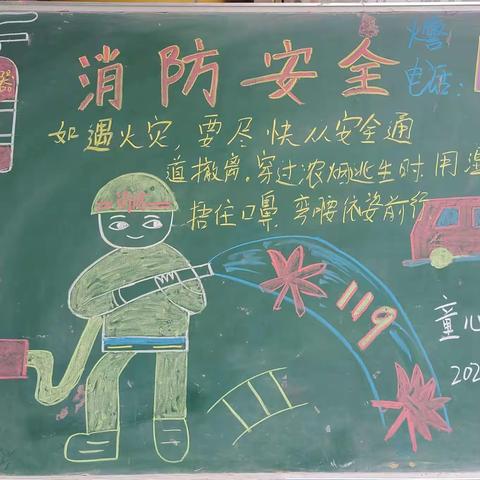 消防安全
火警
电话:
器
如遇火灾,要尽快从安全通
道撤离.穿过浓烟逃生时.用湿
捂住口鼻.弯腰依姿前行
消防
119
童心
202